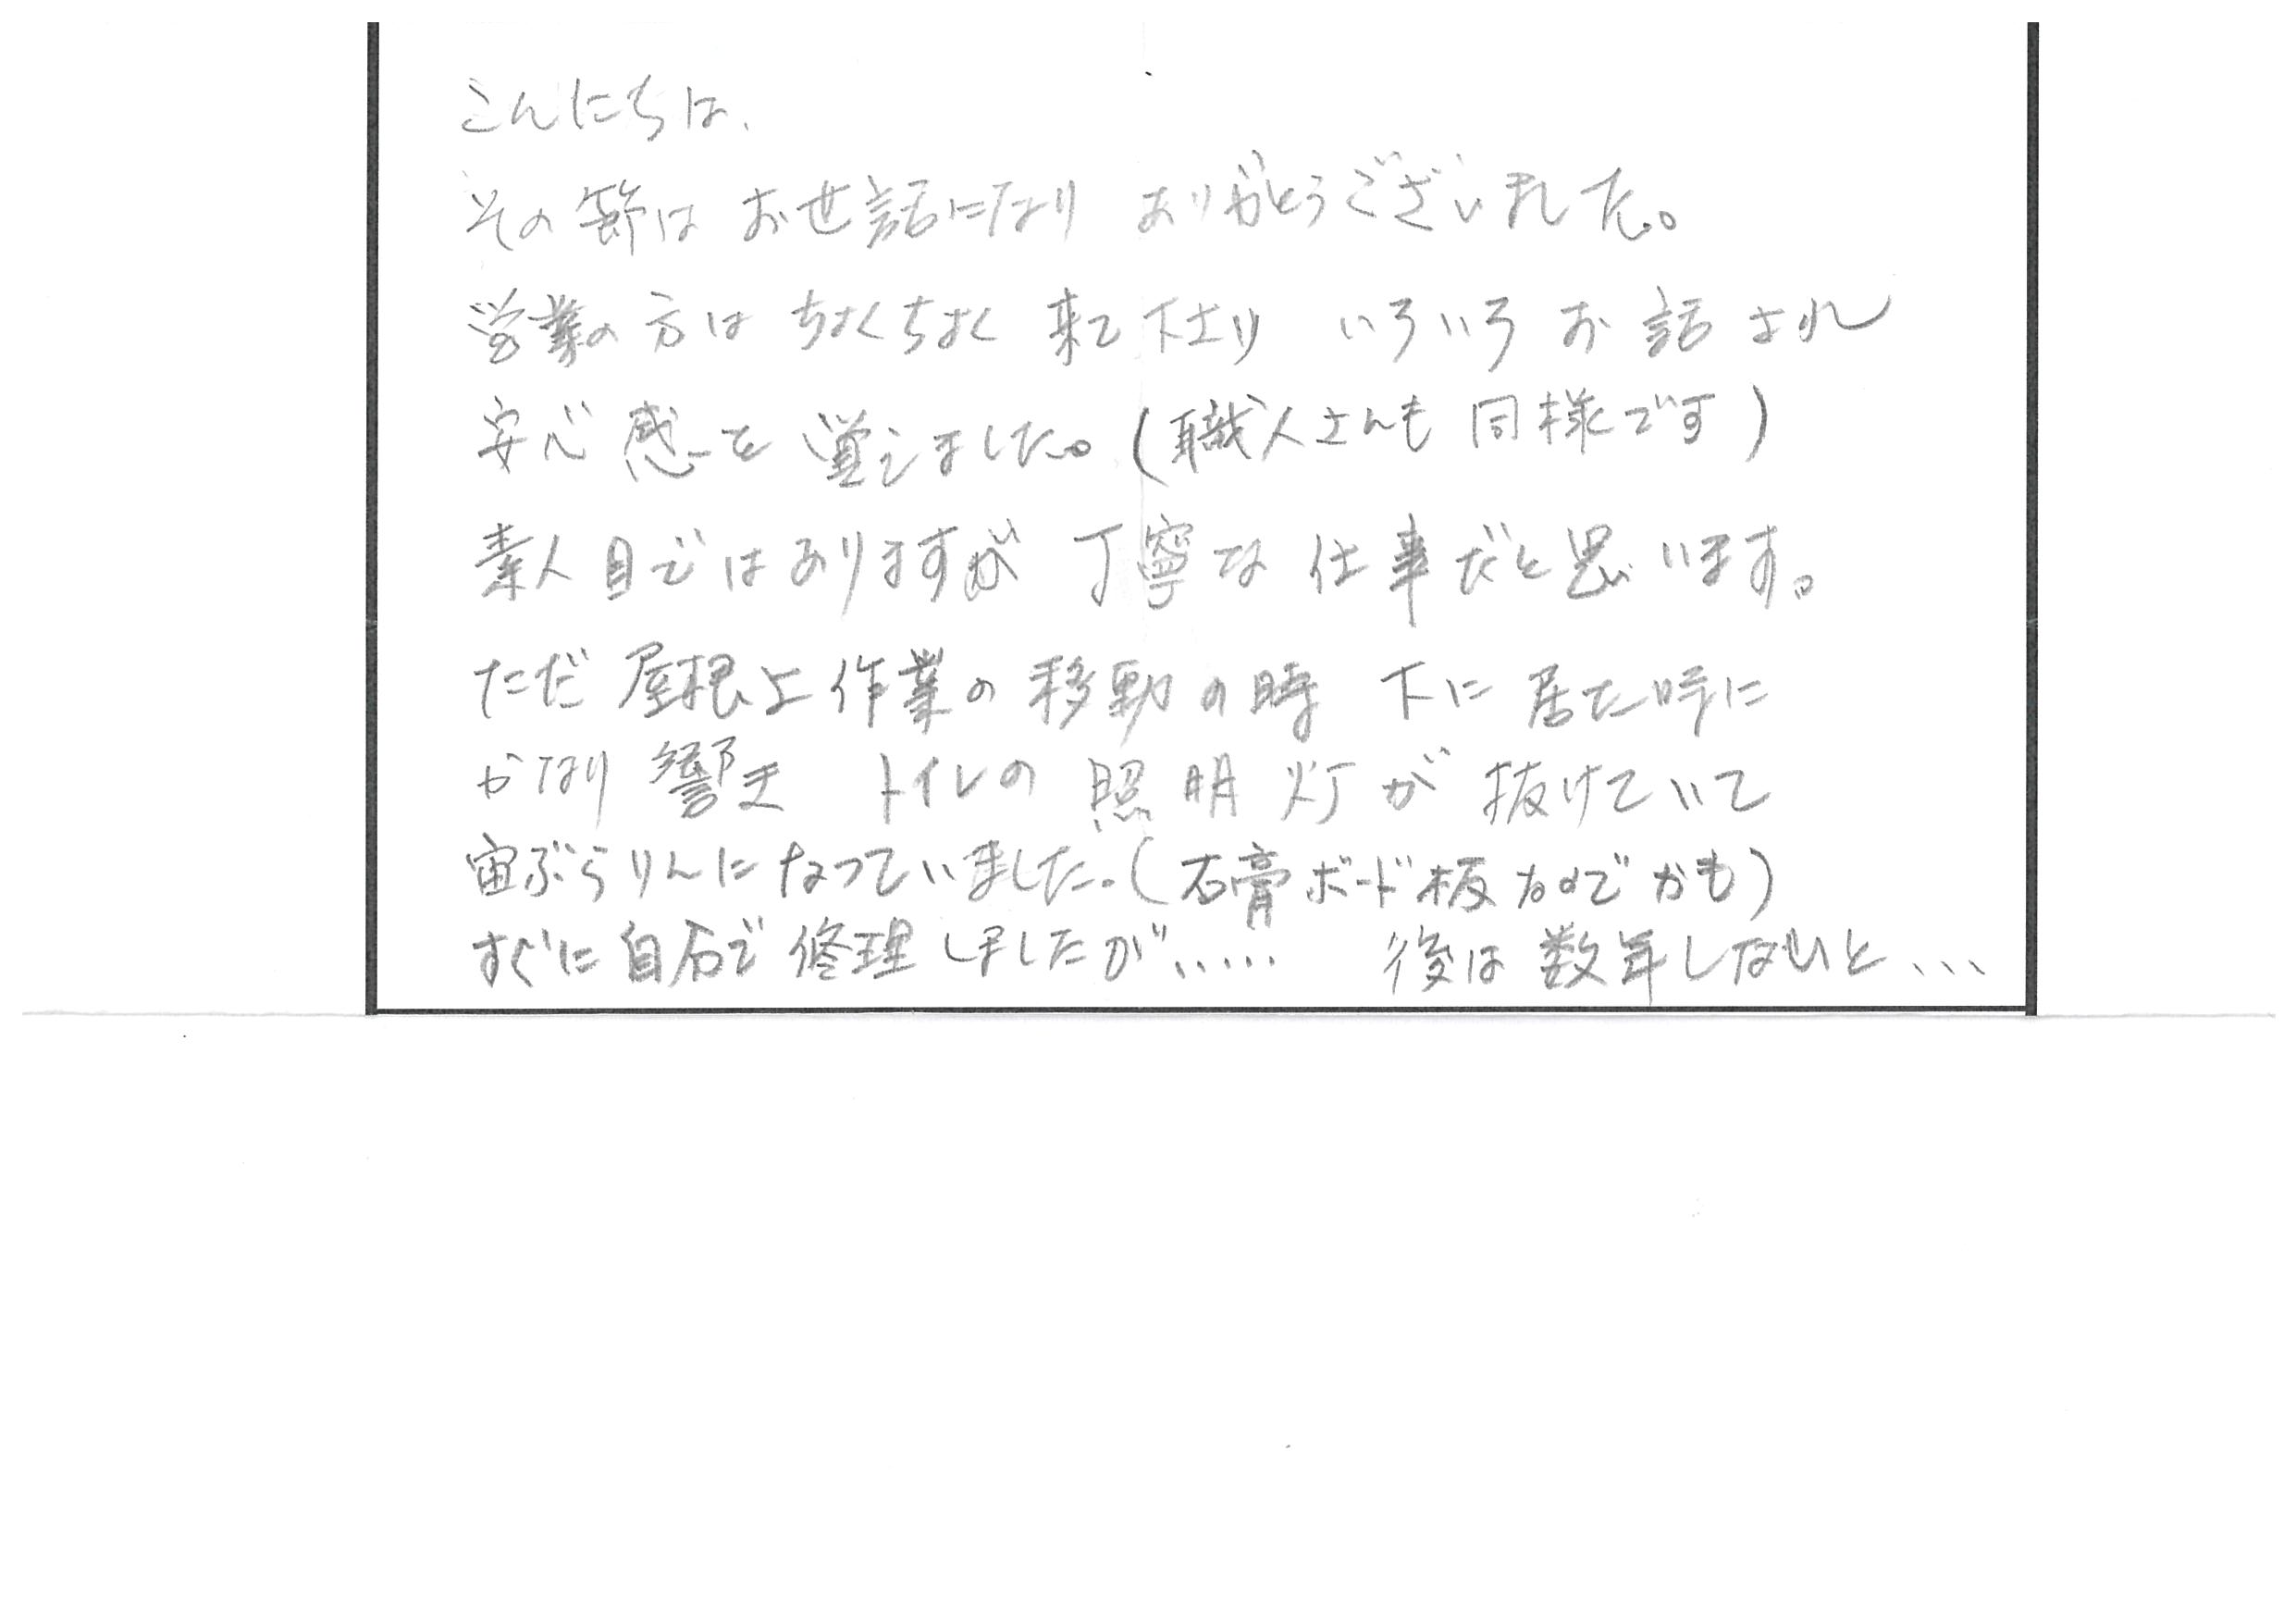 こんにちは、
その節は お世話になり ありがとうございました。
営業の方は ちょくちょく 来て下さり いろいろ お話され
安心感を 覚えました。(職人さんも 同様です)
素人目ではありますが 丁寧な 仕事だと思います。
ただ 屋根上作業の移動の時 下に居た時に
かなり響き トイレの照明灯が抜けていて
宙ぶらりんになっていました。(石膏ボード板なのでかも)
すぐに自分で修理しましたが、、、、、 後は数年しないと、、、